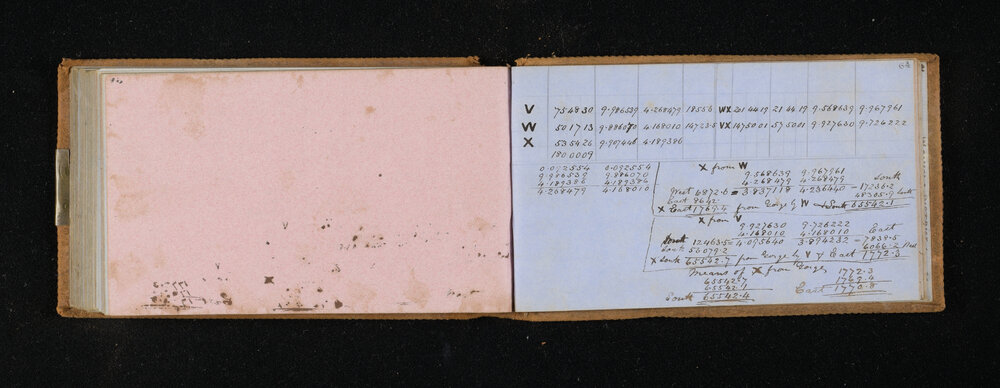 64
V 75 48 30 9.986539 4.268479 18556 WX 201 44 19 21 44 19 9.568639 9.967961
W 50 17 13 9.886070 4.168010 14723.5 VX 147 50 01 57 50 01 9.927630 9.726222
X 53 54 26 9.907446 4.189386
180 00 09
0.092554 0.092554
9.986539 9.886070
4.189386 4.189386
4.268479 4.168010
X from W
9.568639 9.967961
4.268479 4.268479 South
West 6872.6 = 3.837118 4.236440 – 17236.2
East 8642 48305.9 South
X East 1769.4 from Forge by W South 65542.1
X from V
9.927630 9.726222
4.168010 4.168010 East
South 12463.5 = 4.095640 3.894232 – 7838.5
South 53079.2 6066.2 West
X South 65542.7 from Forge by V & East 1772.3
Means of X from Forge
65542.7 1772.3
65542.1 1769.4
South 65542.4 East 1770.8